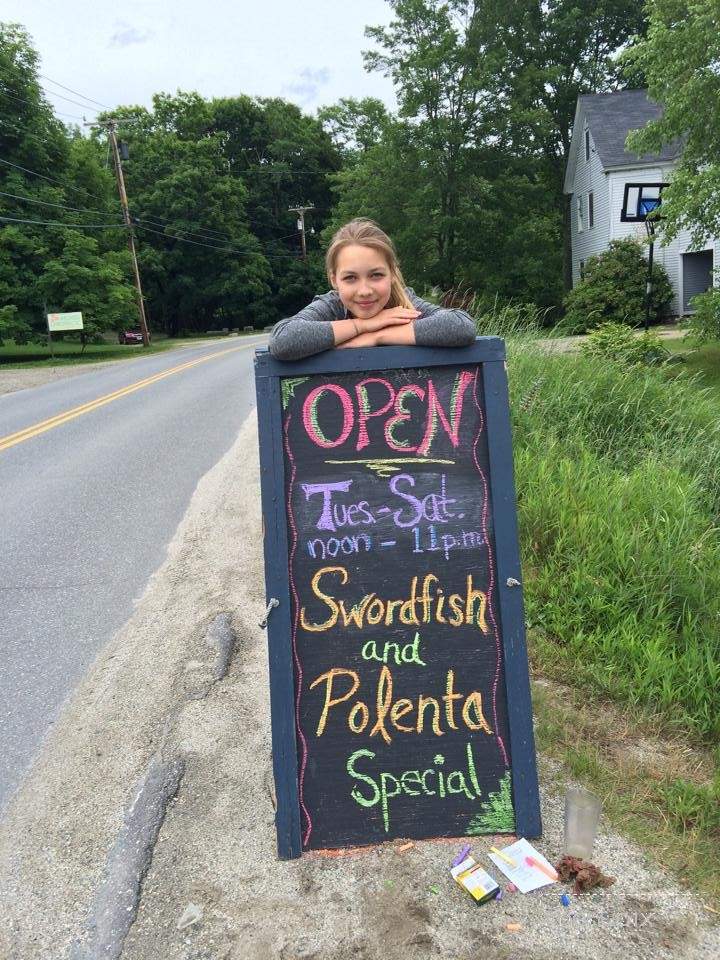 OPEN
Tues.-Sat.
noon - 11p.m.
Swordfish
and
Polenta
Special